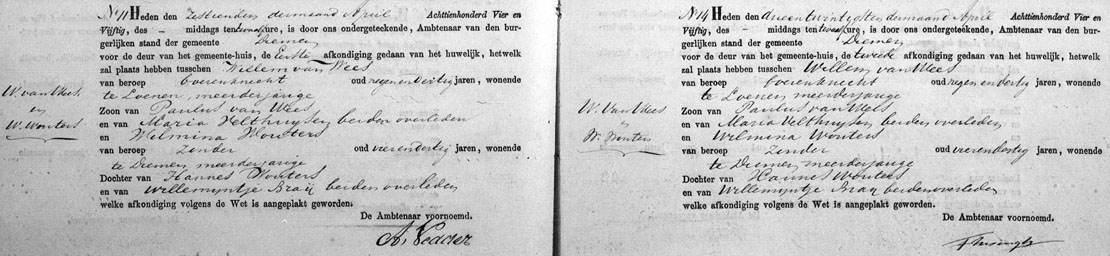 No 11 Heden den zestienden der maand April Achttienhonderd Vier en
Vijftig, des – middags ten twaalf ure, is door ons ondergeteekende, Ambtenaar van den bur-
gerlijken stand der gemeente Diemen
voor de deur van het gemeente-huis, de eerste afkondiging gedaan van het huwelijk, hetwelk
zal plaats hebben tusschen Willem van Wees
van beroep boerenknecht oud negenendertig jaren, wonende
te Loenen, meerderjarige
Zoon van Paulus van Wees
en van Maria Velthuysen beiden overleden
en Wilmina Wouters
van beroep Zonder oud vierendertig jaren, wonende
te Diemen meerderjarige
Dochter van Hannes Wouters
en van Willemyntje Braÿ beiden overleden
welke afkondiging volgens de Wet is aangeplakt geworden.
De Ambtenaar voornoemd.
W. van Wees
en
W. Wouters
No 14 Heden den drieentwintigsten der maand April Achttienhonderd Vier en
Vijftig, des – middags ten twaalf ure, is door ons ondergeteekende, Ambtenaar van den bur-
gerlijken stand der gemeente Diemen
voor de deur van het gemeente-huis, de tweede afkondiging gedaan van het huwelijk, hetwelk
zal plaats hebben tusschen Willem van Wees
van beroep boerenknecht oud negenendertig jaren, wonende
te Loenen meerderjarige
Zoon van Paulus van Wees
en van Maria Velthuysen beiden overleden
en Wilmina Wouters
van beroep Zonder oud vierendertig jaren, wonende
te Diemen meerderjarige
Dochter van Hannes Wouters
en van Willemyntje Braÿ beiden overleden
welke afkondiging volgens de Wet is aangeplakt geworden.
De Ambtenaar voornoemd.
W. Van Wees
W. Wouters